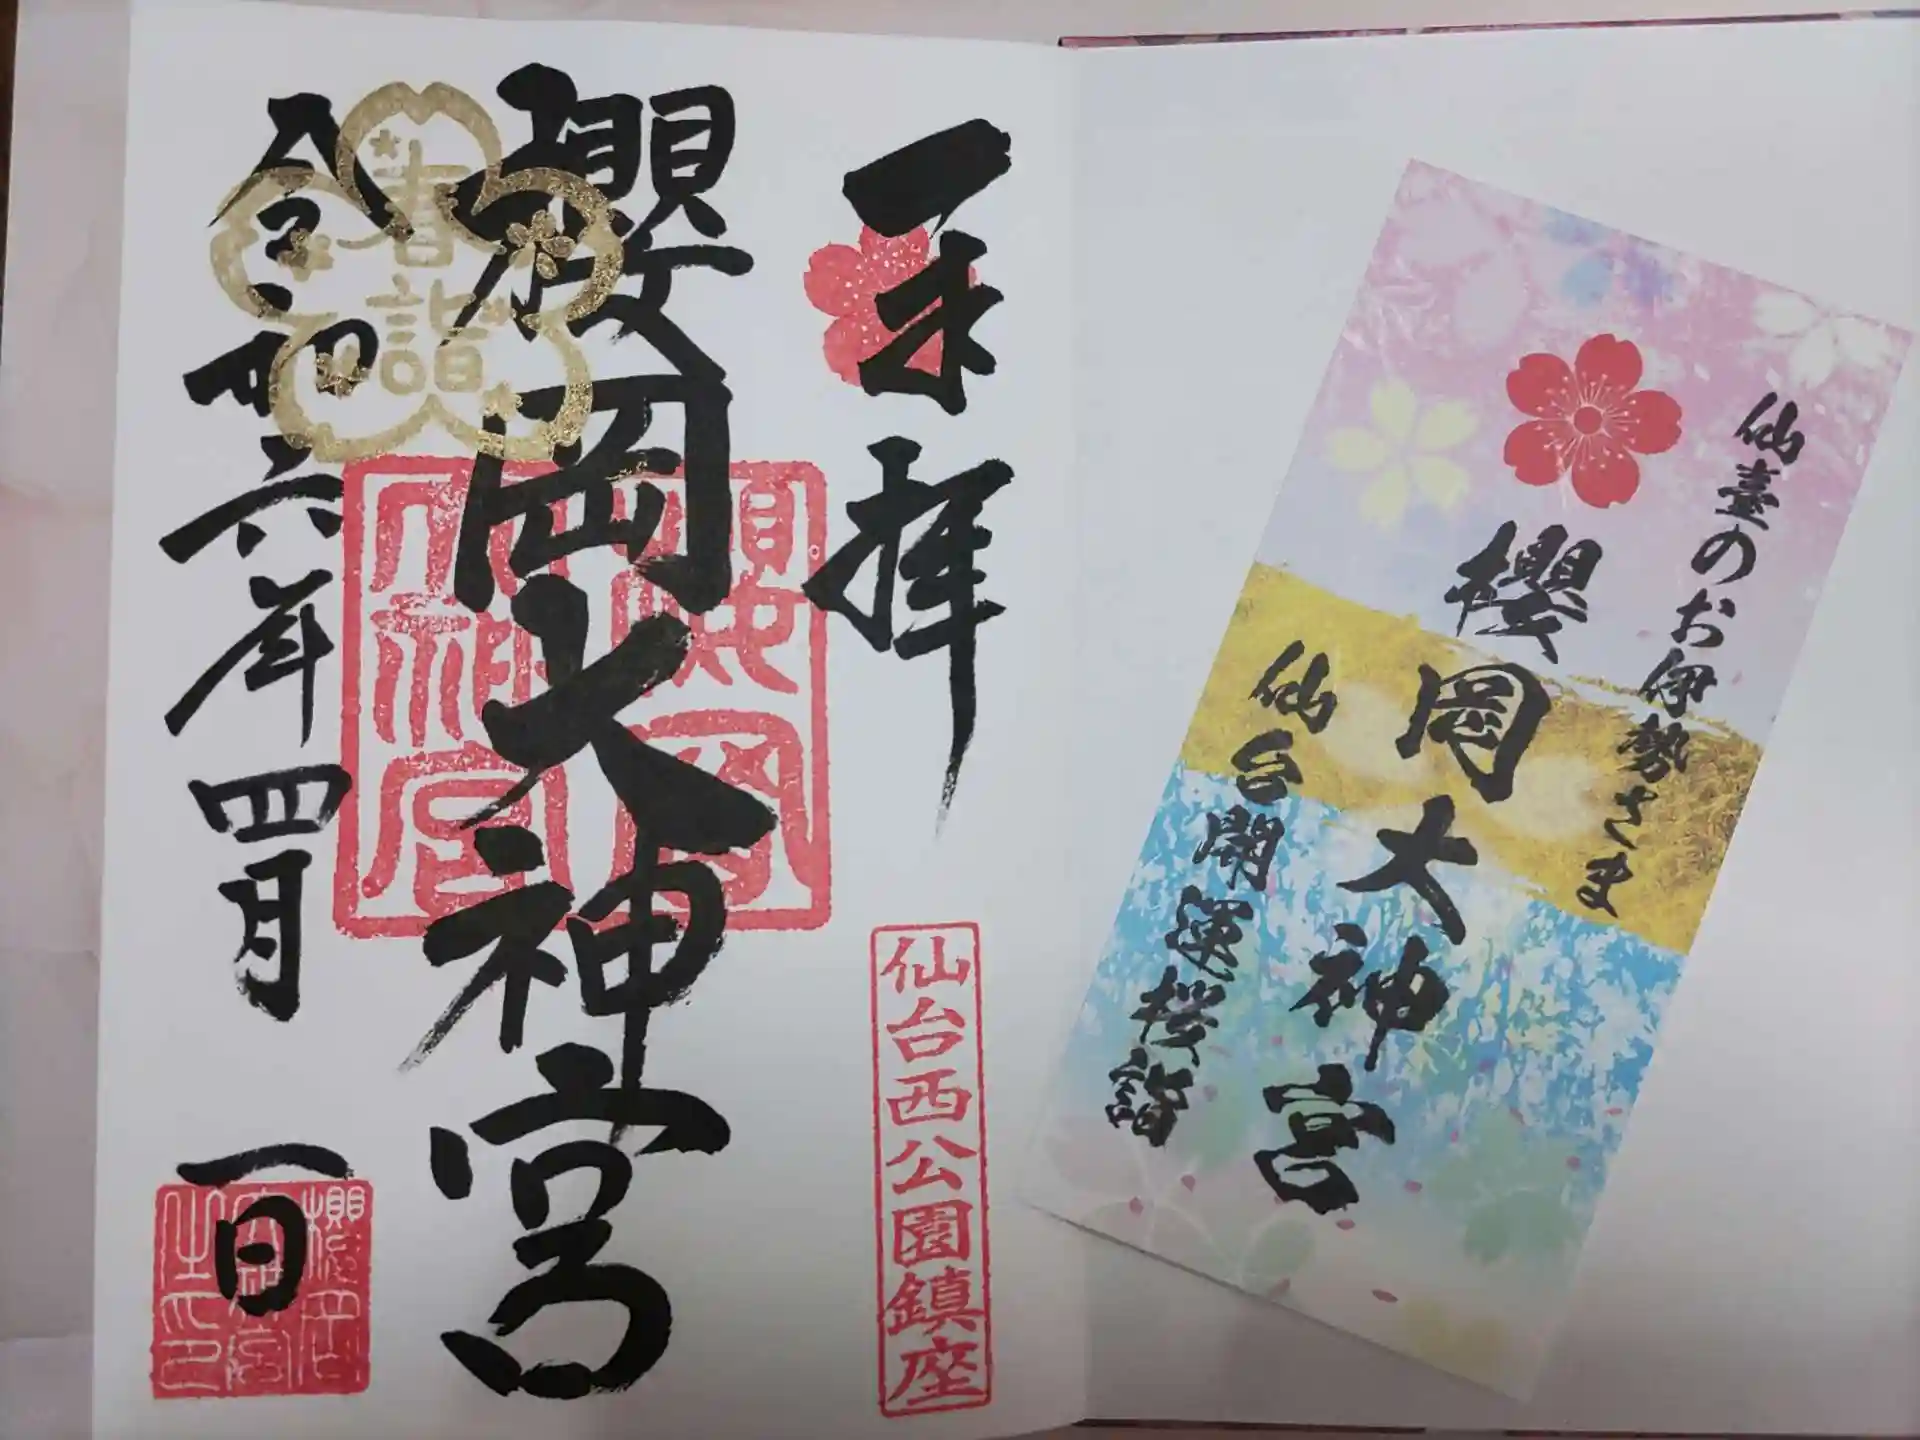 仙臺のお伊勢さま
櫻岡大神宮
仙台開運桜詣
奉拝
仙台西公園鎮座
櫻岡大神宮
櫻岡
神宮
春詣
令和六年四月一日
櫻岡
大神宮
之印